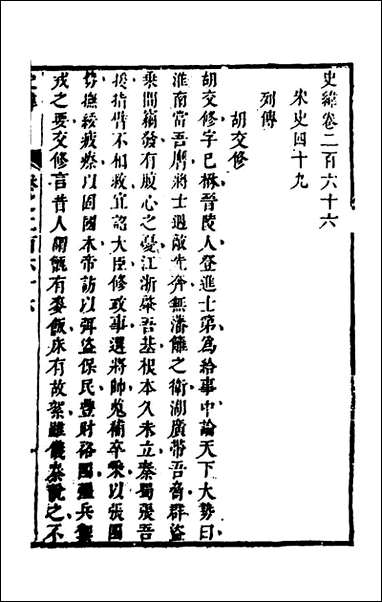 史緯卷二百六十六
宋史四十九
列傳
胡交修
胡交修字己楙晉陵人登進士第爲給事中論天下大勢曰
淮南當吾膺將士遇敵先奔無藩籬之衛湖廣帶吾脅群盜
乘間竊發有腹心之憂江浙肇吾基根本久未立秦蜀張吾
援指臂不相救宜詔大臣修政事選將帥蒐補卒乘以張國
勢撫綏疲瘵以固國本帝訪以弭盜保民豐財裕國彊兵禦
戎之要交修言昔人謂甑有麥飯床有故絮雖儀秦說之不